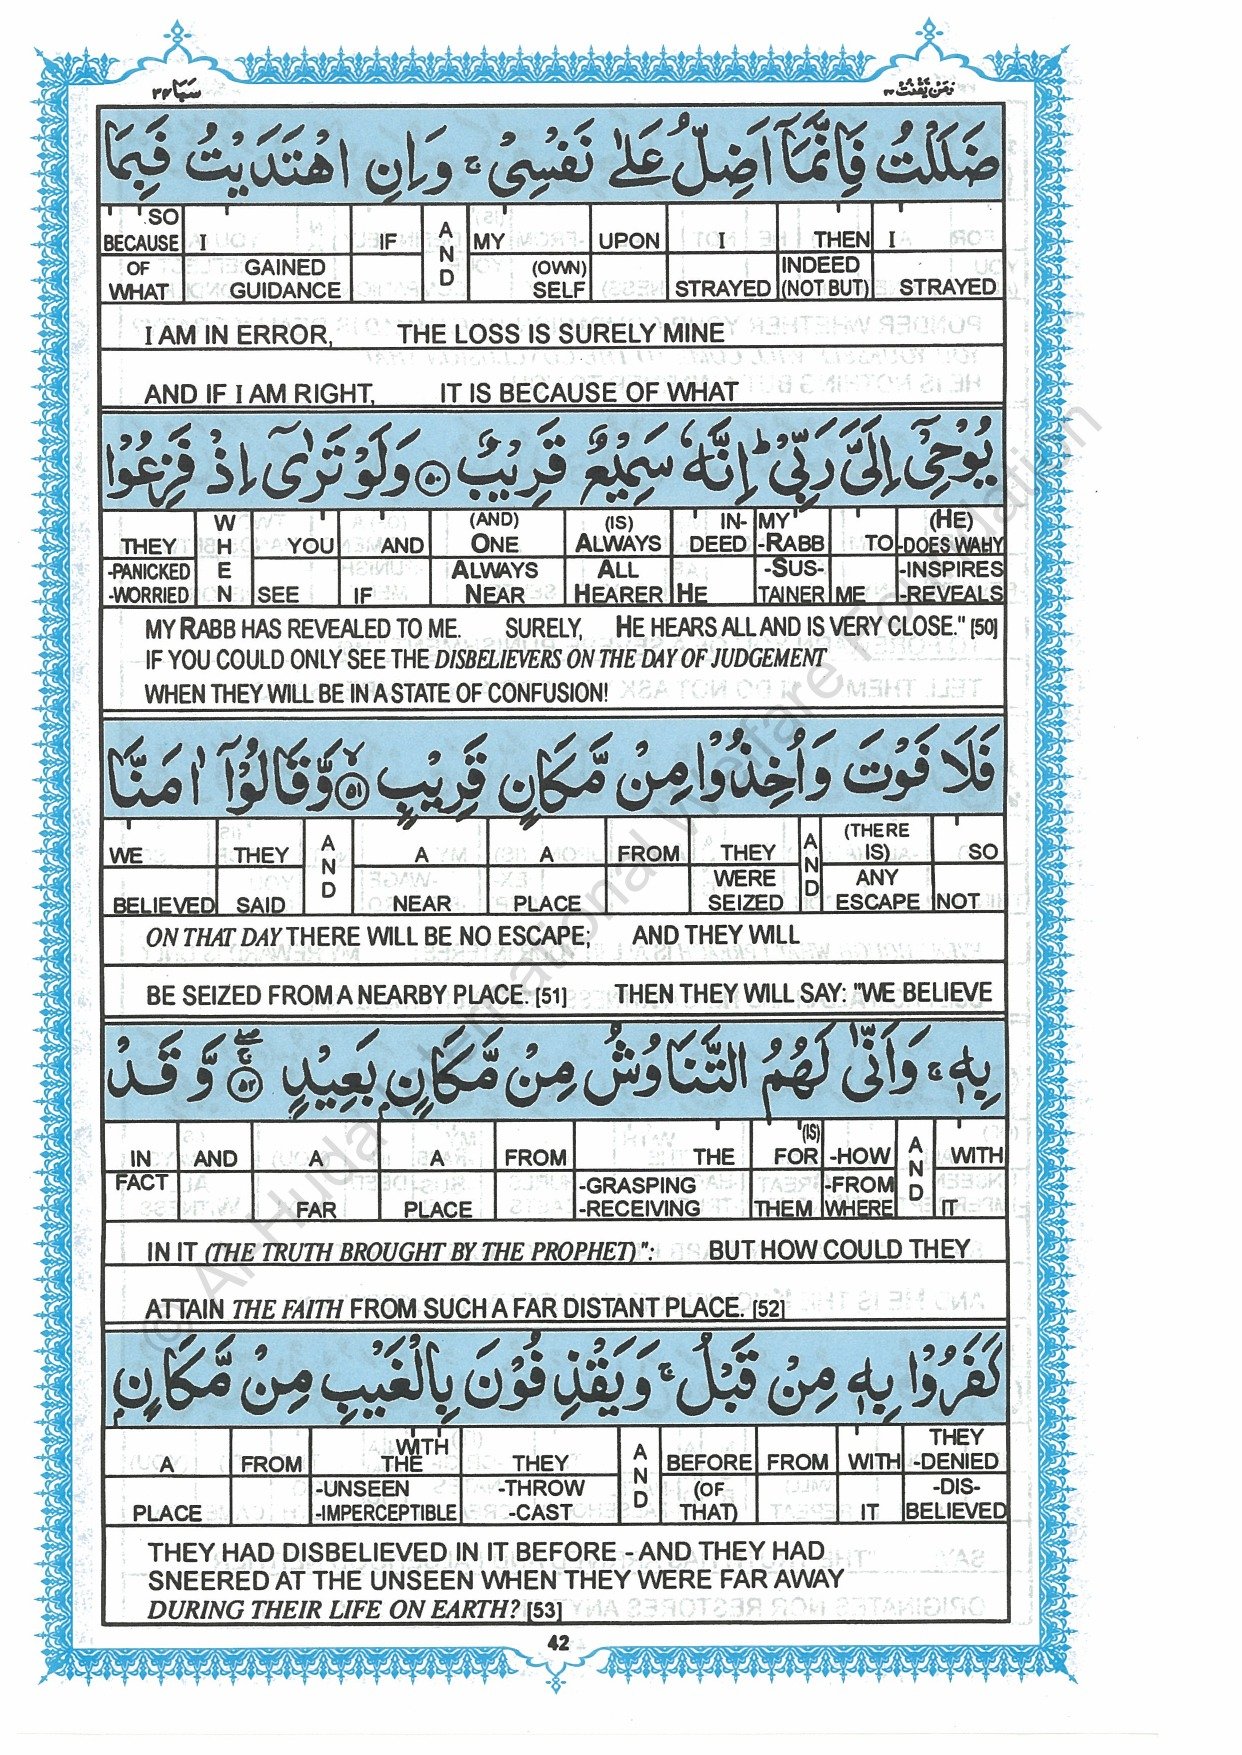 سبا ٣٤ ومن يقنت ٢٢
ضَلَلْتُ فَاِنَّمَاۤ اَضِلُّ عَلٰى نَفْسِیْ ۚ وَ اِنِ اهْتَدَیْتُ فَبِمَا
SO BECAUSE I IF AND MY UPON I THEN I
OF WHAT GAINED GUIDANCE (OWN) SELF STRAYED INDEED (NOT BUT) STRAYED
I AM IN ERROR, THE LOSS IS SURELY MINE
AND IF I AM RIGHT, IT IS BECAUSE OF WHAT
یُوْحِیْۤ اِلَیَّ رَبِّیْ ؕ اِنَّهٗ سَمِیْعٌ قَرِیْبٌ ۝۵۰ وَ لَوْ تَرٰۤى اِذْ فَزِعُوْا
THEY WHEN YOU AND (AND) ONE (IS) ALWAYS IN-DEED MY -RABB TO (HE) -DOES WAHY
-PANICKED -WORRIED SEE IF ALWAYS NEAR ALL HEARER HE -SUS-TAINER ME -INSPIRES -REVEALS
MY RABB HAS REVEALED TO ME. SURELY, HE HEARS ALL AND IS VERY CLOSE." [50]
IF YOU COULD ONLY SEE THE DISBELIEVERS ON THE DAY OF JUDGEMENT
WHEN THEY WILL BE IN A STATE OF CONFUSION!
فَلَا فَوْتَ وَ اُخِذُوْا مِنْ مَّكَانٍ قَرِیْبٍ ۝۵۱ وَّ قَالُوْۤا اٰمَنَّا
WE THEY AND A A FROM THEY AND (THERE IS) SO
BELIEVED SAID NEAR PLACE WERE SEIZED ANY ESCAPE NOT
ON THAT DAY THERE WILL BE NO ESCAPE; AND THEY WILL
BE SEIZED FROM A NEARBY PLACE. [51] THEN THEY WILL SAY: "WE BELIEVE
بِهٖ ۚ وَ اَنّٰى لَهُمُ التَّنَاوُشُ مِنْ مَّكَانٍۭ بَعِیْدٍ ۝۵۲ وَّ قَدْ
IN AND A A FROM THE (IS) FOR -HOW AND WITH
FACT FAR PLACE -GRASPING -RECEIVING THEM -FROM WHERE IT
IN IT (THE TRUTH BROUGHT BY THE PROPHET)": BUT HOW COULD THEY
ATTAIN THE FAITH FROM SUCH A FAR DISTANT PLACE. [52]
كَفَرُوْا بِهٖ مِنْ قَبْلُ ۚ وَ یَقْذِفُوْنَ بِالْغَیْبِ مِنْ مَّكَانٍۭ
A FROM WITH THE THEY AND BEFORE FROM WITH THEY -DENIED
PLACE -UNSEEN -IMPERCEPTIBLE -THROW -CAST (OF THAT) IT -DIS-BELIEVED
THEY HAD DISBELIEVED IN IT BEFORE - AND THEY HAD
SNEERED AT THE UNSEEN WHEN THEY WERE FAR AWAY
DURING THEIR LIFE ON EARTH? [53]
42
© Al-Huda International Welfare Foundation